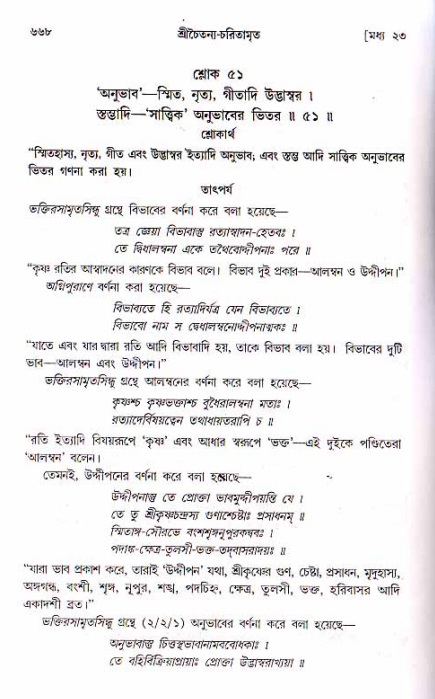 ৬৬৮ শ্রীচৈতন্য-চরিতামৃত [মধ্য ২৩
শ্লোক ৫১
'অনুভাব'—স্মিত, নৃত্য, গীতাদি উদ্ভাস্বর ।
স্তম্ভাদি—'সাত্ত্বিক' অনুভাবের ভিতর ॥ ৫১ ॥
শ্লোকার্থ
"স্মিতহাস্য, নৃত্য, গীত এবং উদ্ভাস্বর ইত্যাদি অনুভাব; এবং স্তম্ভ আদি সাত্ত্বিক অনুভাবের
ভিতর গণনা করা হয়।
তাৎপর্য
ভক্তিরসামৃতসিন্ধু গ্রন্থে বিভাবের বর্ণনা করে বলা হয়েছে—
তত্র জ্ঞেয়া বিভাবাস্তু রত্যাস্বাদন-হেতবঃ ।
তে দ্বিধালম্বনা একে তথৈবোদ্দীপনাঃ পরে ॥
"কৃষ্ণ রতির আস্বাদনের কারণকে বিভাব বলে। বিভাব দুই প্রকার—আলম্বন ও উদ্দীপন।"
অগ্নিপুরাণে বর্ণনা করা হয়েছে—
বিভাব্যতে হি রত্যাদির্যত্র যেন বিভাব্যতে ।
বিভাবো নাম স দ্বেধালম্বনোদ্দীপনাত্মকঃ ॥
"যাতে এবং যার দ্বারা রতি আদি বিভাবাদি হয়, তাকে বিভাব বলা হয়। বিভাবের দুটি
ভাব—আলম্বন এবং উদ্দীপন।"
ভক্তিরসামৃতসিন্ধু গ্রন্থে আলম্বনের বর্ণনা করে বলা হয়েছে—
কৃষ্ণশ্চ কৃষ্ণভক্তাশ্চ বুধৈরালম্বনা মতাঃ ।
রত্যাদের্বিষয়ত্বেন তথাধায়তরাপি চ ॥
"রতি ইত্যাদি বিষয়রূপে 'কৃষ্ণ' এবং আধার স্বরূপে 'ভক্ত'—এই দুইকে পণ্ডিতেরা
'আলম্বন' বলেন।
তেমনই, উদ্দীপনের বর্ণনা করে বলা হয়েছে—
উদ্দীপনাস্তু তে প্রোক্তা ভাবমুদ্দীপয়ন্তি যে ।
তে তু শ্রীকৃষ্ণচন্দ্রস্য গুণাশ্চেষ্টাঃ প্রসাধনম্ ॥
স্মিতাঙ্গ-সৌরভে বংশশৃঙ্গনূপুরকম্ববঃ ।
পদাঙ্ক-ক্ষেত্র-তুলসী-ভক্ত-তদ্বাসরাদয়ঃ ॥
"যারা ভাব প্রকাশ করে, তারাই 'উদ্দীপন' যথা, শ্রীকৃষ্ণের গুণ, চেষ্টা, প্রসাধন, মৃদুহাস্য,
অঙ্গগন্ধ, বংশী, শৃঙ্গ, নূপুর, শঙ্খ, পদচিহ্ন, ক্ষেত্র, তুলসী, ভক্ত, হরিবাসর আদি
একাদশী ব্রত।"
ভক্তিরসামৃতসিন্ধু গ্রন্থে (২/২/১) অনুভাবের বর্ণনা করে বলা হয়েছে—
অনুভাবাস্তু চিত্তস্থভাবানামববোধকাঃ ।
তে বহির্বিক্রিয়াপ্রায়াঃ প্রোক্তা উদ্ভাস্বরাখ্যয়া ॥